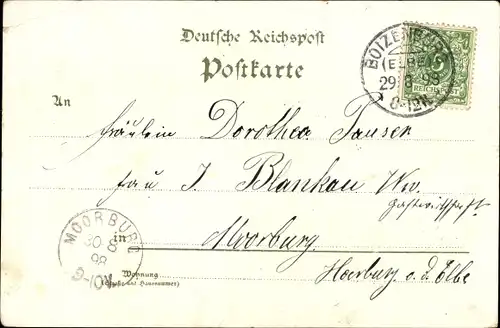 Deutsche Reichspost
Postkarte
BOIZENBURG
(ELBE)
29 8 98
8-12N.
REICHSPOST
An
Fräulein Dorothea Jansen
frau J. Blankau Ww.
Gastwirtschaft
in Moorburg
Harburg a. d. Elbe
MOORBURG
30 8
98
Wohnung
(Straße und Hausnummer)